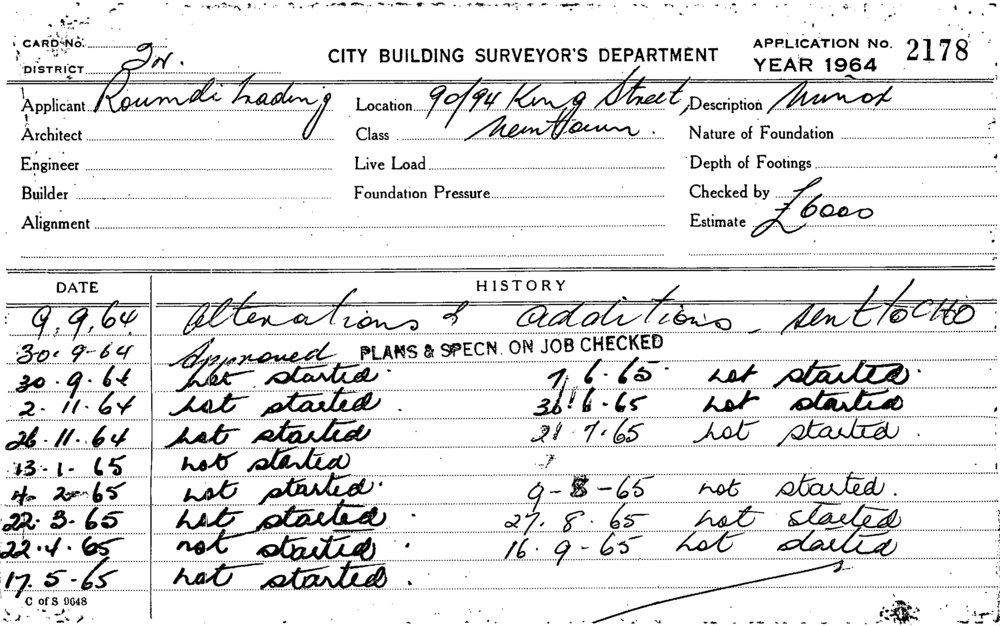 CARD No.
CITY BUILDING SURVEYOR'S DEPARTMENT
APPLICATION No. 2178
DISTRICT
YEAR 1964
Applicant Trading Location 90/94 King Street, Description
Architect Class Newtown. Nature of Foundation
Engineer Live Load Depth of Footings
Builder Foundation Pressure Checked by
Alignment Estimate £6000
DATE HISTORY
9.9.64 Alterations & additions - sent to CHO
30.9-64 Approved PLANS & SPECN. ON JOB CHECKED
30.9.64 not started. 7.6.65. not started.
2.11.64 not started. 6-65 not started
26.11.64 not started 7.65 not started.
13-1-65 not started
4-2-65 not started. 9-8-65 not started.
22.3-65 not started. 27.8.65 not started
22.4.65 not started. 16.9-65 not started
17.5-65 not started.
C of S 9648